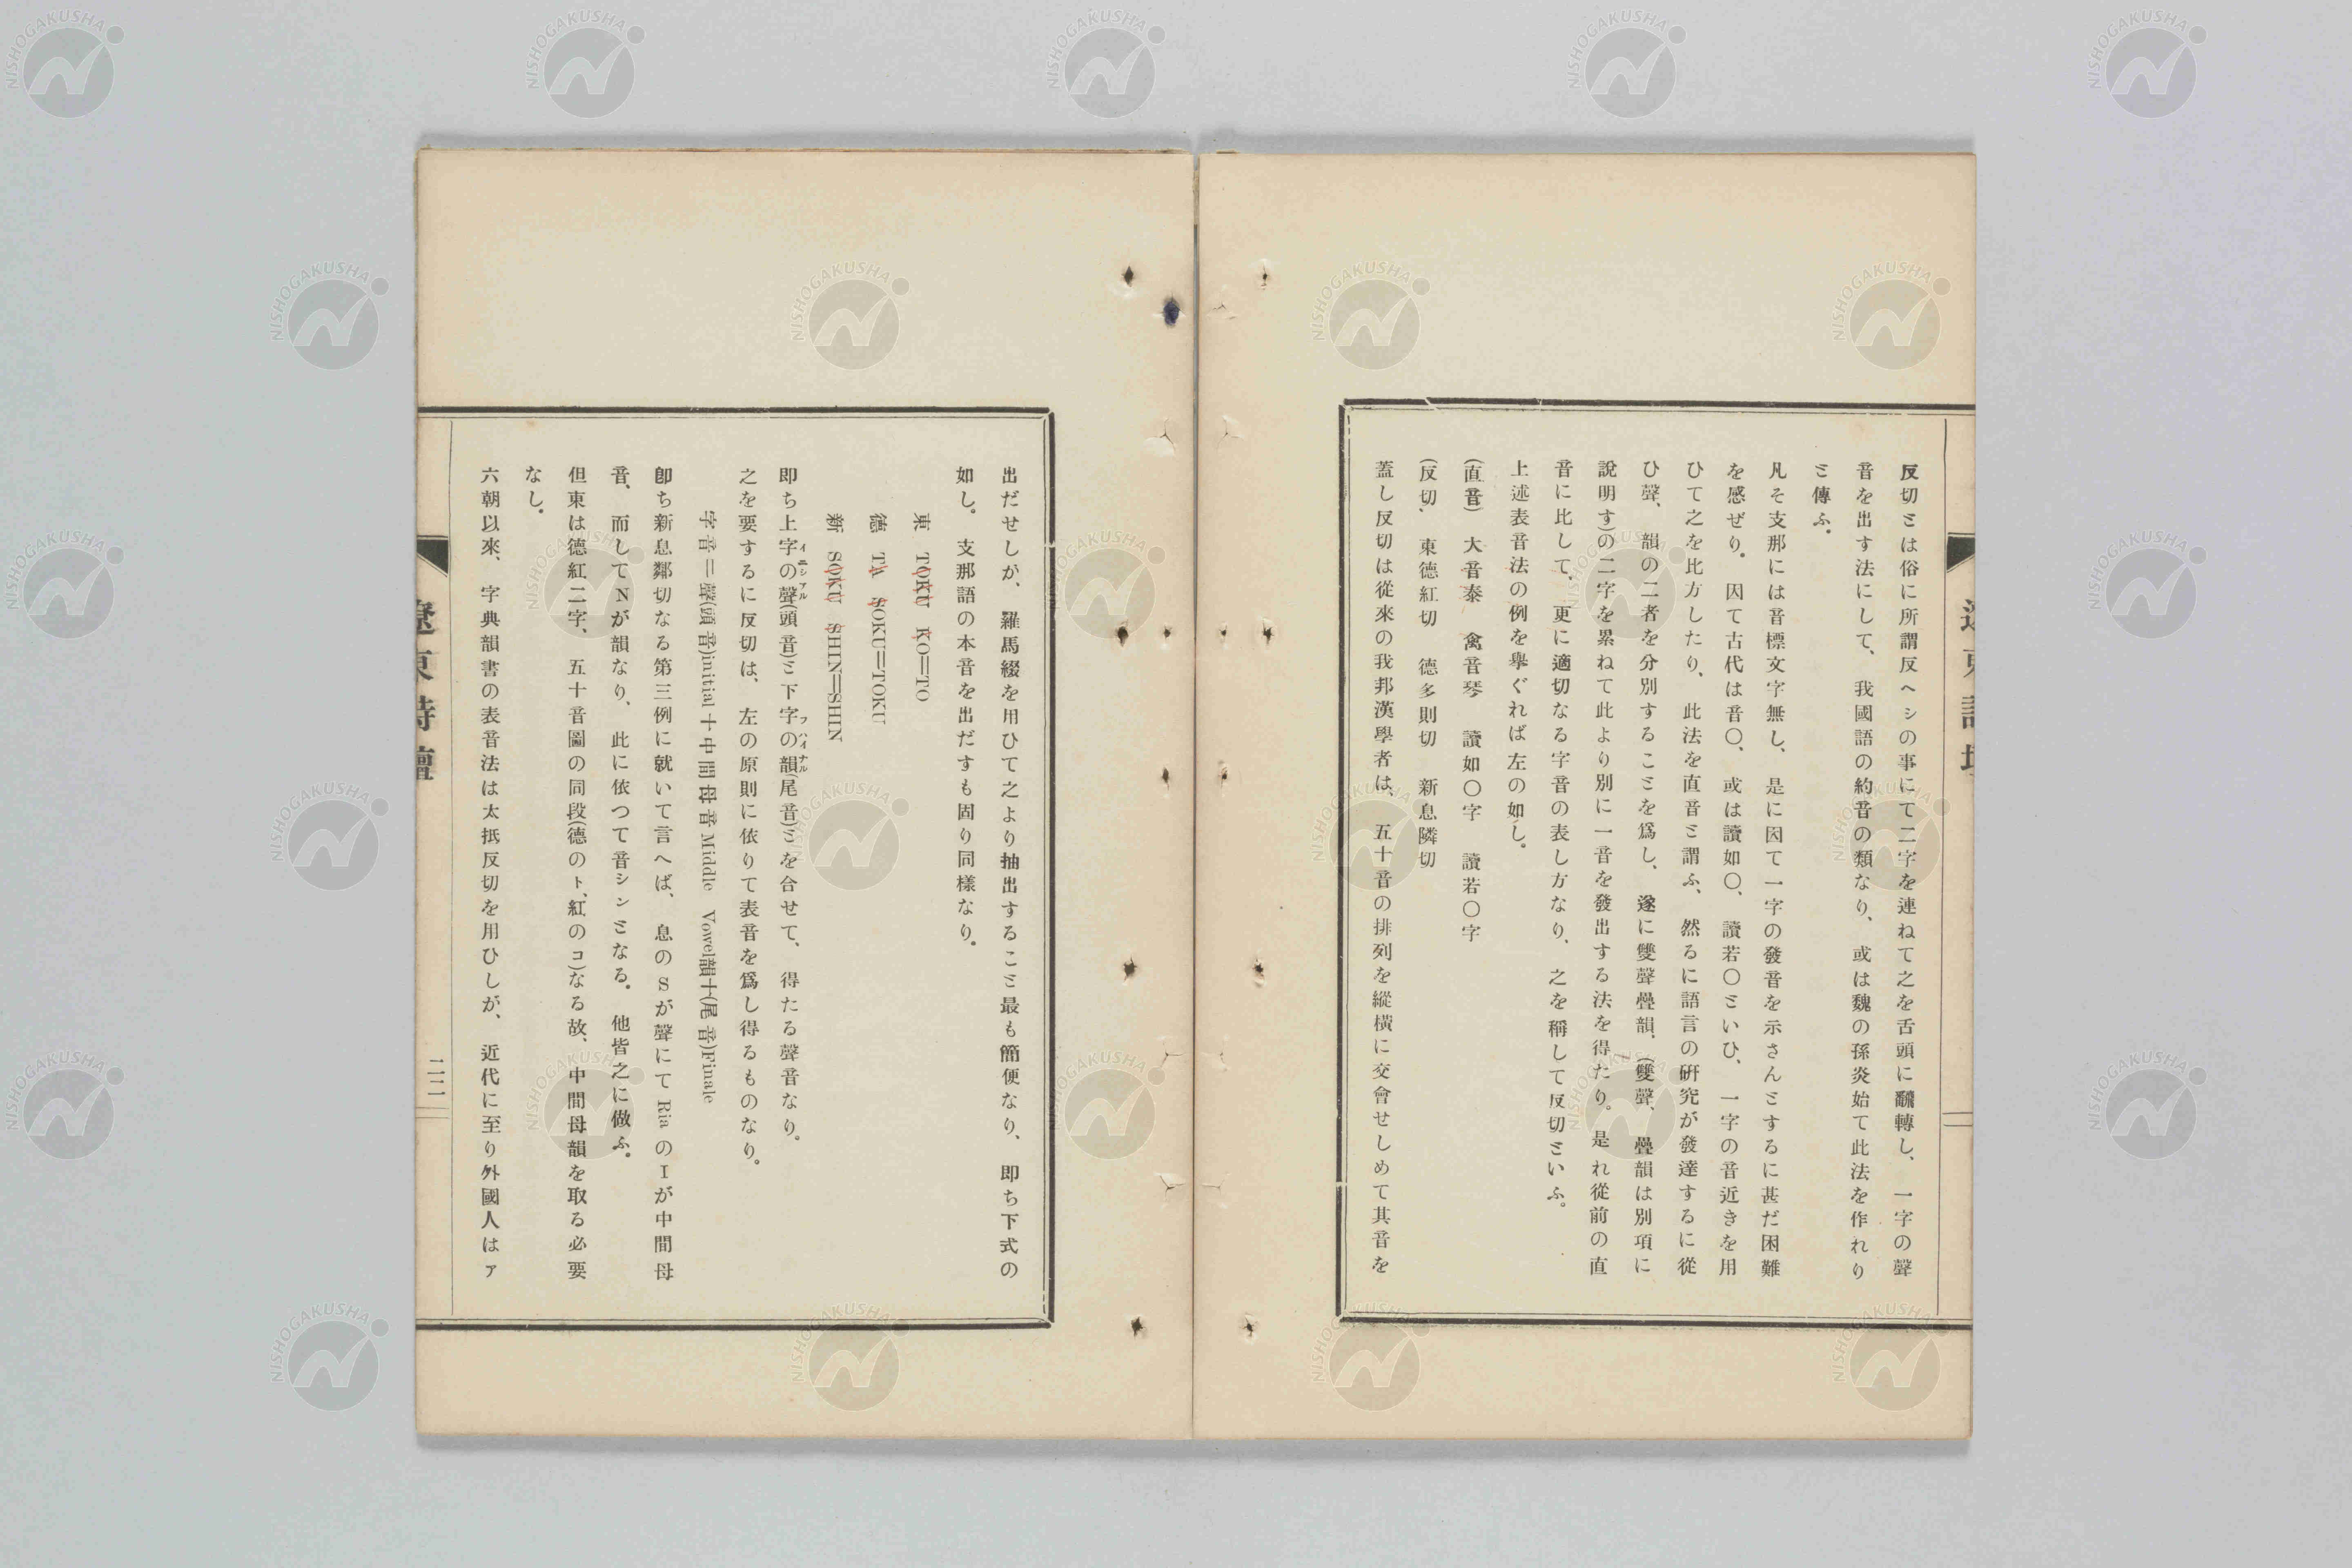 反切とは俗に所謂反ヘシの事にて二字を連ねて之を舌頭に飜轉し、一字の聲
音を出す法にして、我國語の約音の類なり、或は魏の孫炎始て此法を作れり
と傳ふ。
凡そ支那には音標文字無し、是に因て一字の發音を示さんとするに甚だ困難
を感ぜり。因て古代は音〇、或は讀如〇、讀若〇といひ、一字の音近きを用
ひて之を比方したり、此法を直音と謂ふ、然るに語言の硏究が發達するに從
ひ聲、韻の二者を分別することを爲し、遂に雙聲疊韻、(雙聲、疊韻は別項に
說明す)の二字を累ねて此より別に一音を發出する法を得たり。是れ從前の直
音に比して、更に適切なる字音の表し方なり、之を稱して反切といふ。
上述表音法の例を擧ぐれば左の如し。
(直音) 大音泰 禽音琴 讀如〇字 讀若〇字
(反切、東德紅切 德多則切 新息隣切
蓋し反切は從來の我邦漢學者は、五十音の排列を縱橫に交會せしめて其音を
出だせしが、羅馬綴を用ひて之より抽出すること最も簡便なり、即ち下式の
如し。支那語の本音を出だすも固り同樣なり。
東 TOKU KO=TO
德 TA SOKU=TOKU
新 SOKU SHIN=SHIN
即ち上字の聲イニシアル(頭音)と下字の韻フハイナル(尾音)とを合せて、得たる聲音なり。
之を要するに反切は、左の原則に依りて表音を爲し得るものなり。
字音=聲(頭音)initial十中間母音Middle Vowel韻十(尾音)Finale
卽ち新息鄰切なる第三例に就いて言へば、息のSが聲にてRinのIが中間母
音、而してNが韻なり、此に依つて音シンとなる。他皆之に倣ふ。
但東は德紅二字、五十音圖の同段(德のト、紅のコ)なる故、中間母韻を取る必要
なし。
六朝以來、字典韻書の表音法は太抵反切を用ひしが、近代に至り外國人はア
遼東詩壇
二二